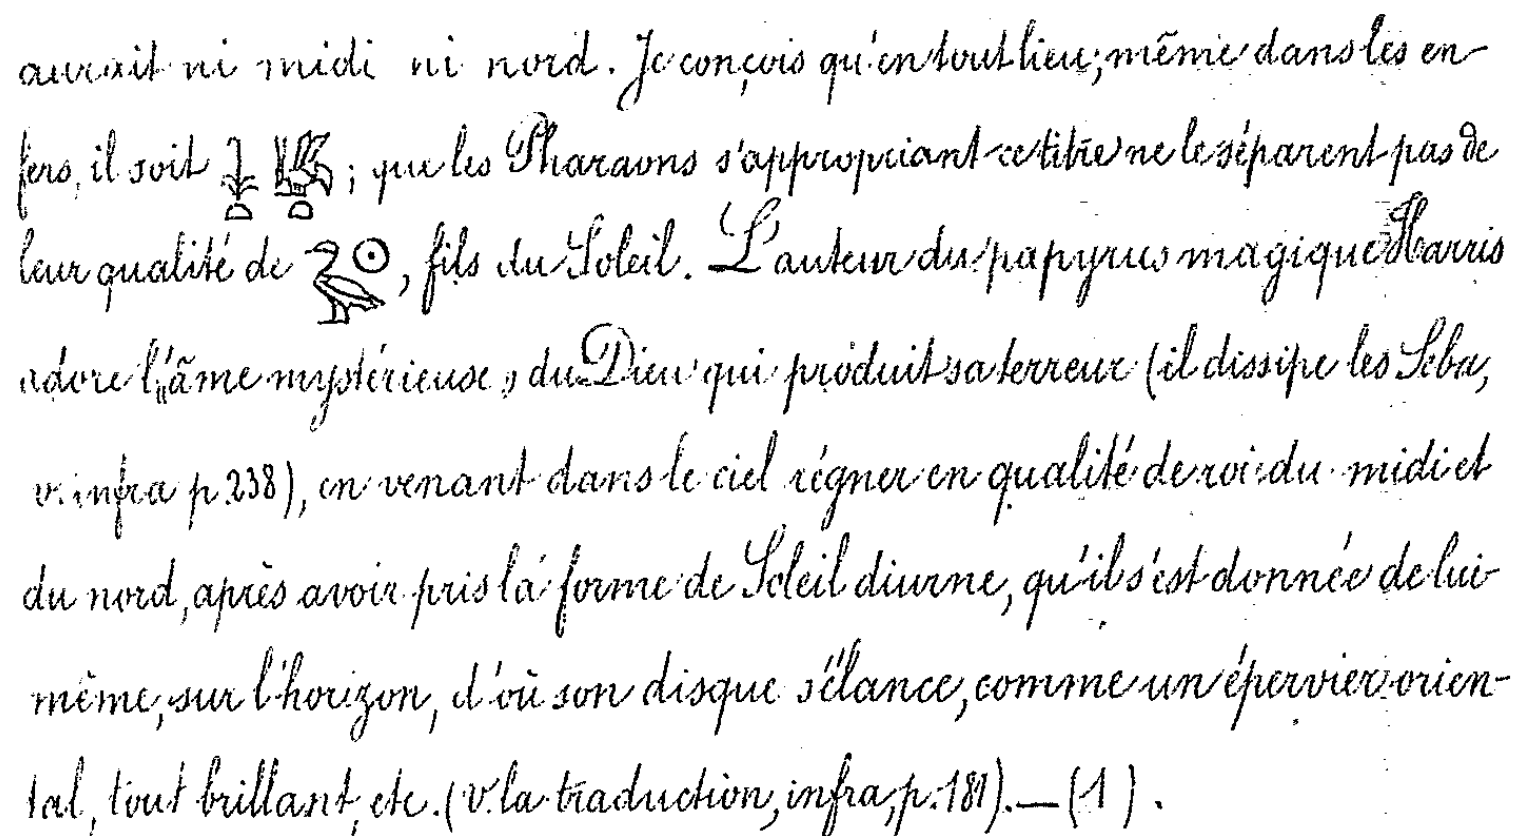 aurait ni midi ni nord. Je conçois qu'en tout lieu, même dans les en-
fers, il soit 𓇓𓏏𓆤𓏏 ; que les Pharaons s'appropriant ce titre ne le séparent pas de
leur qualité de 𓅭𓇳, fils du Soleil. L'auteur du papyrus magique Harris
adore l'„âme mystérieuse„ du Dieu qui produit sa terreur (il dissipe les Seba,
v. infra p. 238), en venant dans le ciel régner en qualité de roi du midi et
du nord, après avoir pris la forme de Soleil diurne, qu'il s'est donnée de lui-
même, sur l'horizon, d'où son disque s'élance, comme un épervier orien-
tal, tout brillant, etc. (v. la traduction, infra, p. 181). — (1).